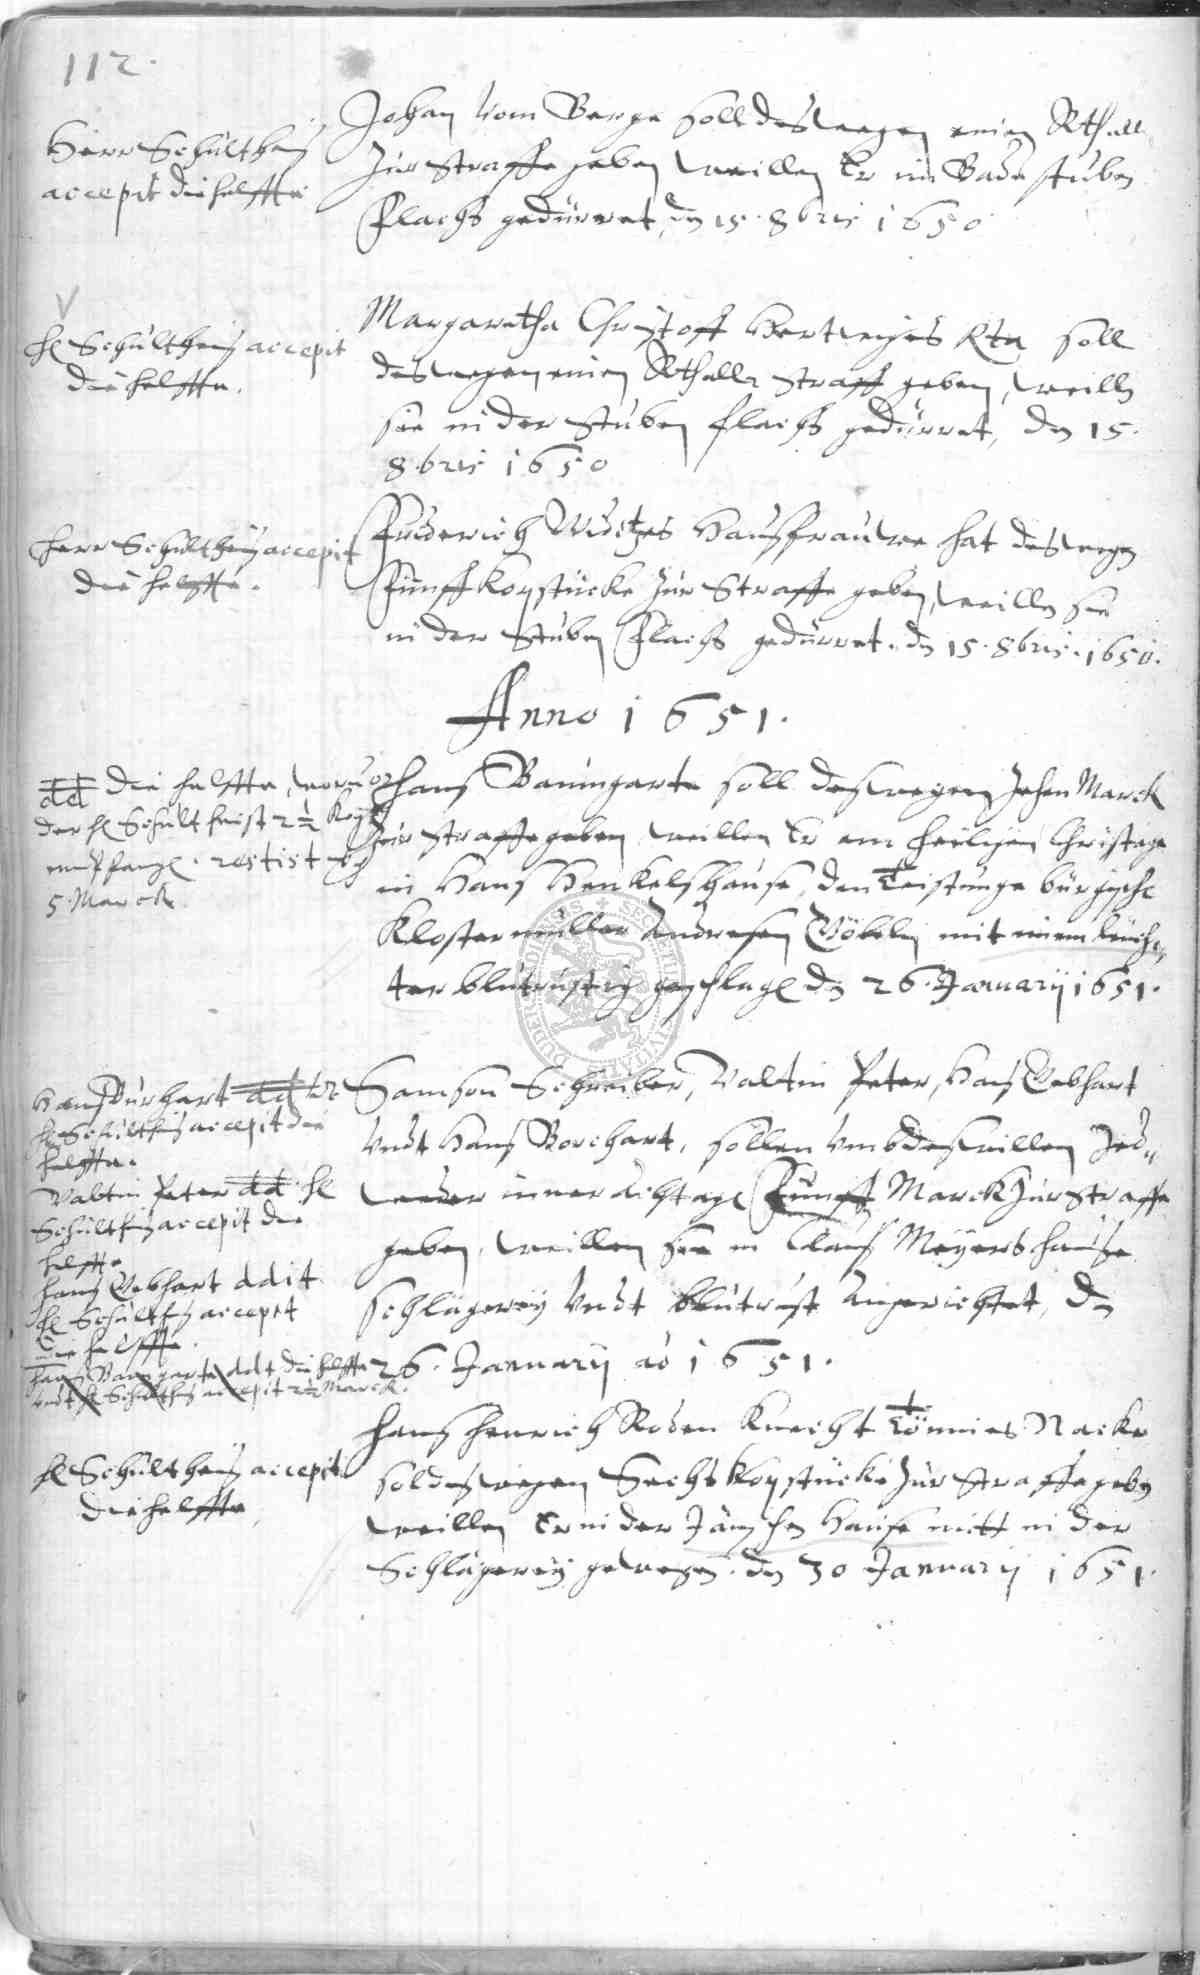 112.
Herr Schultheiß
accepit die helffte
Johan vom Berge soll deswegen einen Rthall.
zur straffe geben weillen Er im Badestuben
Flachß gedürret, den 15. 8bris 1650
H Schultheiß accepit
die helffte.
Margaretha Christoff Hertwiges Rta soll
deswegen einen Rthallr straff geben, weilln
sie in der Stuben flachß gedürret, den 15.
8.bris 1650
Herr Schultheiß accepit
die helffte.
Friderich Hausfrauwe hat deswegen
Fünff Kopstücke zur Straffe geben, weilln sie
in der Stuben Flachß gedürret. den 15. 8bris. 1650.
Anno 1651.
dd die helffte, worvor
der H Schultheist 2½
empfangen. rest ist noch
5. Marck
Hans Baumgarte soll deswegen zehen Marck
zur straffe geben weillen Er am heiligen Christage
in Hans Henkels hause, den Teistungeburgischen
Klostermüller Andresen mit einem leuch„
ter blutrüstig geschlagen den 26. Januarij 1651.
Hans Burchart dd
H Schultheiß accepit die
helffte.
Valtin Peter dd H
Schultheiß accepit die
helffte
Hans Gebhart ddit
H Schultheiß accepit
die helffte.
Hans Baumgarte ddt die helffte
undt H Schultheiß accepit 2½ Marck.
Samson Schreiber, Valtin Peter, Hans Gebhart
undt Hans Borchart, sollen umbdeswillen Jed„
weder inner achtagen Fünff Marck zur Straffe
geben, weillen sie in Claus Meyers hause
schlägerey undt blutrust angerichtet, den
26. Januarij ao 1651.
H Schultheiß accepit
die helffte
Hans Henrich Roden Knecht Tönnies Nacke
sol deswegen Sechs Kopstücke zur Straffe geben
weillen Er in der Hause mitt in der
Schlägerey gewesen. den 30 Januarij 1651.